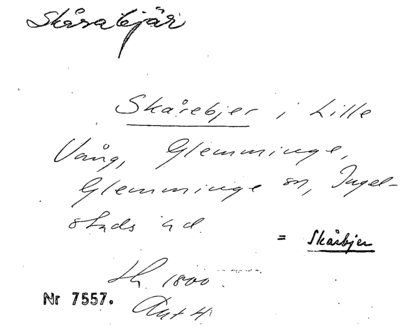 Skårabjär
Skårebjer i Lille
Vång, Glemminge,
Glemminge sn, Ingel-
stads hd.
= Skårbjer
Lh. 1800
Nr 7557.
Akt 4